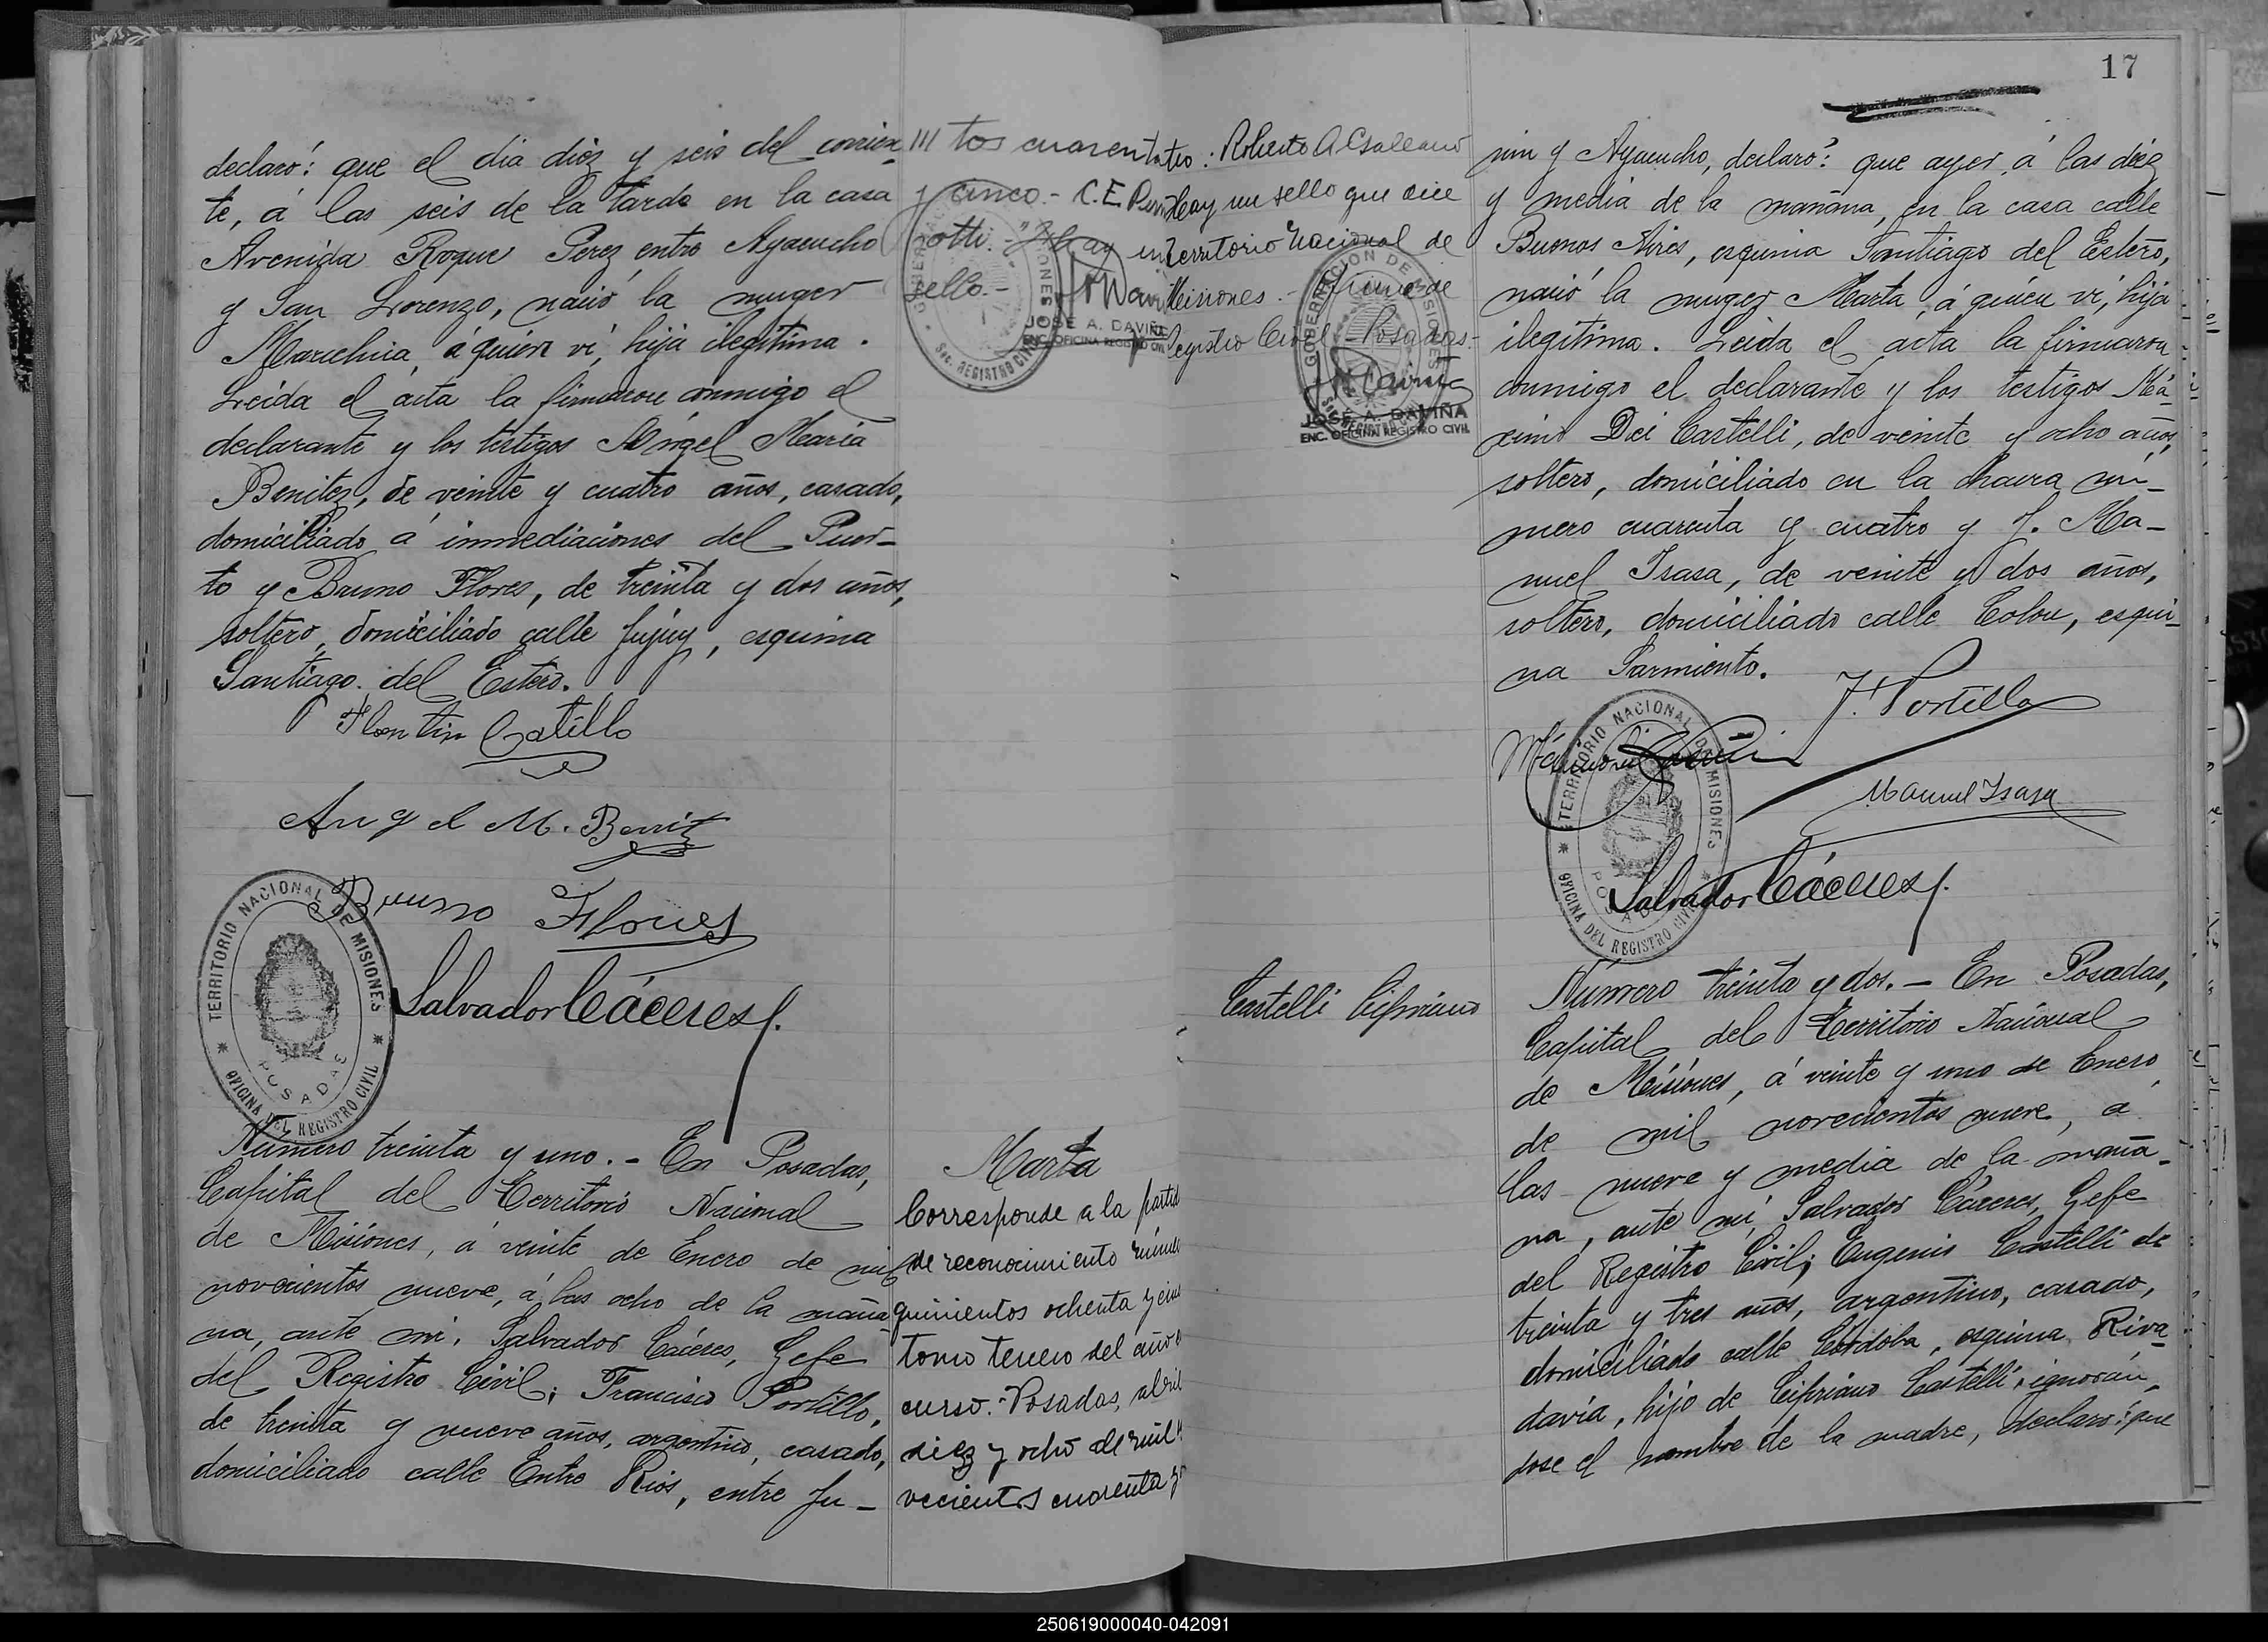 declaró: que el dia diez y seis del corrien
te, á las seis de la tarde en la casa
Avenida Roque Perez entre Ayacucho
y San Lorenzo, nació la muger
Maruchica, á quien ví, hija ilegitima.
Leida el acta la firmaron conmigo el
declarante y los testigos Angel Maria
Benitez, de veinte y cuatro años, casado,
domiciliado á inmediaciones del Puer-
to y Bruno Flores, de treinta y dos años,
soltero, domiciliado calle Jujuy, esquina
Santiago del Estero.
Angel M. Benitz
Bruno Flores
Salvador Cáceres
TERRITORIO NACIONAL DE MISIONES
POSADAS
OFICINA DEL REGISTRO CIVIL
Número treinta y uno. - En Posadas,
Capital del Territorio Nacional
de Misiones, á veinte de Enero de mil
novecientos nueve, á las ocho de la maña
na, ante mi, Salvador Cáceres, Gefe
del Registro Civil; Francisco Portillo,
de treinta y nueve años, argentino, casado,
domiciliado calle Entre Rios, entre Ju-
/// tos cuaren
y cinco. - C.E.
hay
sello.-
JOSÉ A. DAVIÑA
ENC. OFICINA REGISTRO CIVIL
Marta
Corresponde a la partid
de reconocimiento núme
quinientos ochenta y
tomo tercero del año e
curso.- Posadas, abril
diez y ocho de mil
vecientos cuarenta y
17
Roberto A Galeano
hay un sello que dice
Territorio Nacional de
Misiones.-
Registro Civil - Posadas.-
GOBERNACION DE MISIONES
SEC. REGISTRO CIVIL
JOSÉ A. DAVIÑA
ENC. OFICINA REGISTRO CIVIL
nin y Ayacucho, declaró: que ayer, á las diez
y media de la mañana, en la casa calle
Buenos Aires, esquina Santiago del Estero,
nació la muger Marta, á quien ví, hija
ilegitima. Leida el acta la firmaron
conmigo el declarante y los testigos Má-
ximo Dei Castelli, de veinte y ocho años,
soltero, domiciliado en la chacra nú-
mero cuarenta y cuatro y J. Ma-
nuel Isasa, de veinte y dos años,
soltero, domiciliado calle Colon, esqui-
na Sarmiento.
J. Portillo
Manuel Isasa
TERRITORIO NACIONAL DE MISIONES
POSADAS
OFICINA DEL REGISTRO CIVIL
Salvador Cáceres
Castelli Cipriano
Número treinta y dos. - En Posadas,
Capital del Territorio Nacional
de Misiones, á veinte y uno de Enero
de mil novecientos nueve, á
las nueve y media de la maña-
na, ante mi, Salvador Cáceres, Gefe
del Registro Civil; Eugenio Castelli de
treinta y tres años, argentino, casado,
domiciliado calle Córdoba, esquina Riva-
davia, hijo de Cipriano Castelli, ignorán-
dose el nombre de la madre, declaró: que
250619000040-042091